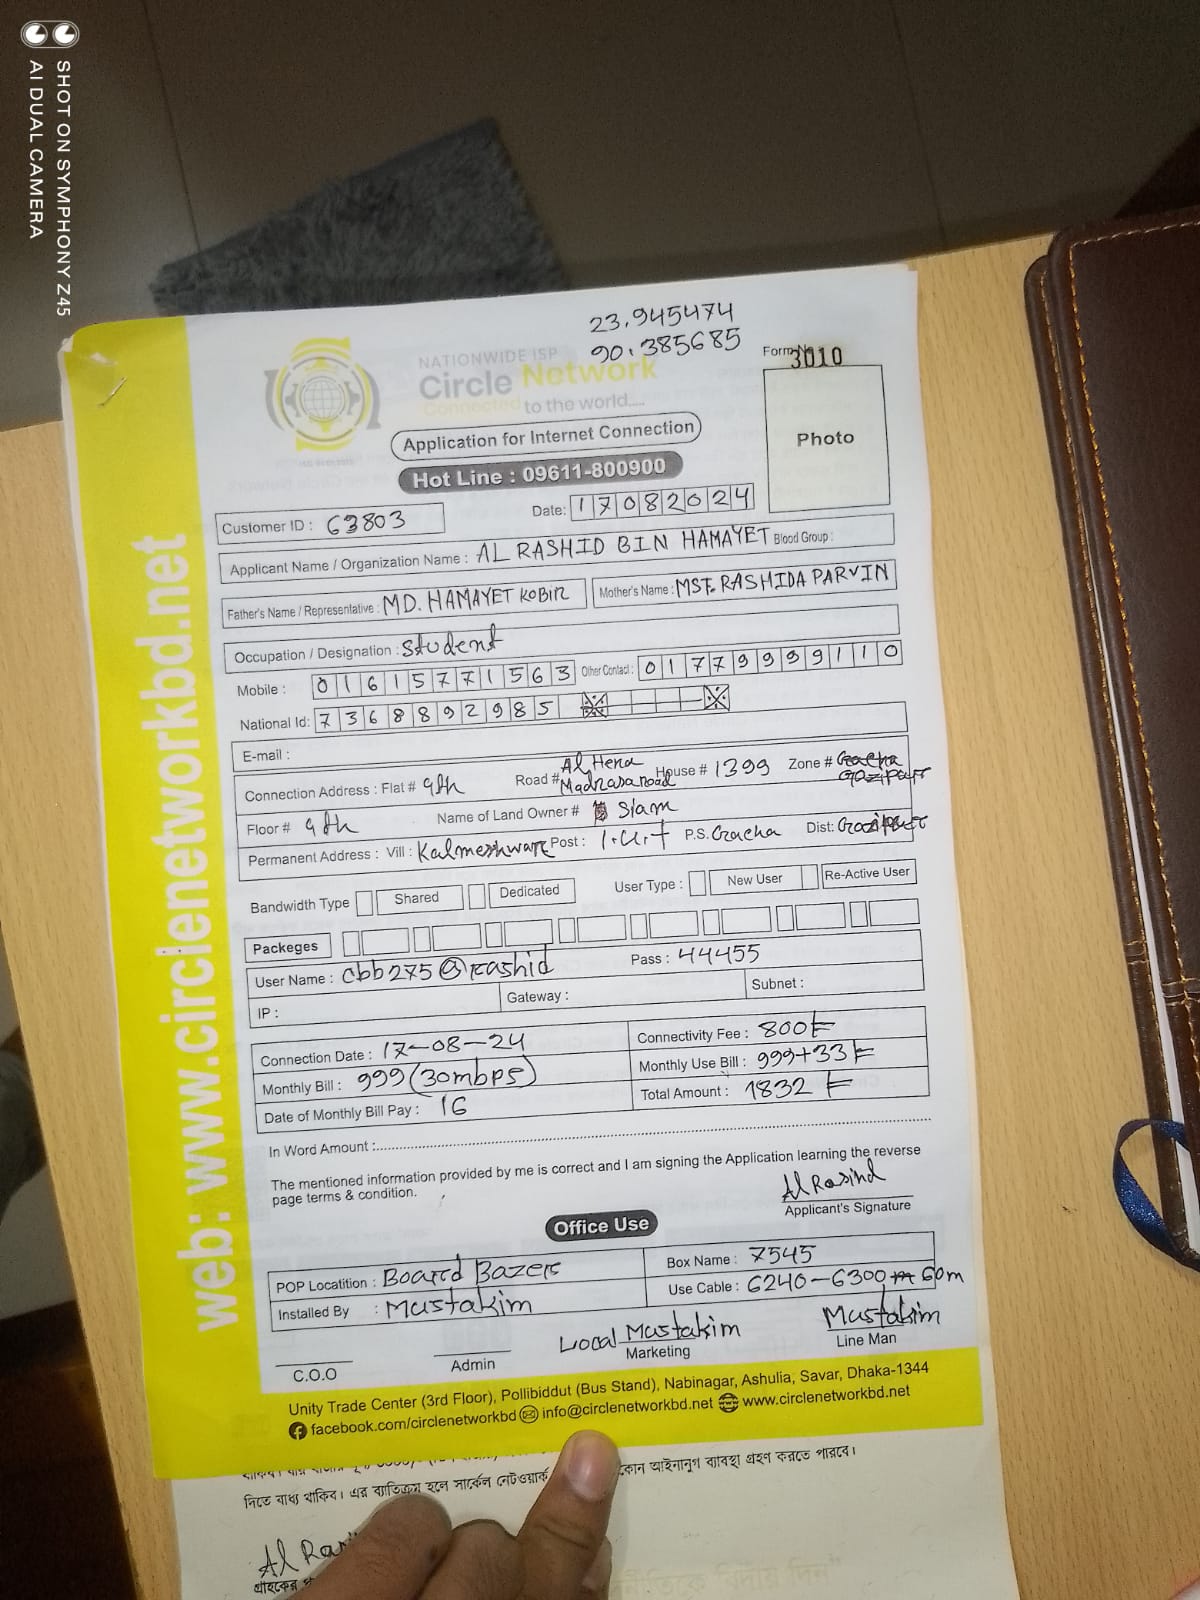 SHOT ON SYMPHONY Z45
AI DUAL CAMERA
23.945474
90.385685
NATIONWIDE ISP
Circle Network
Connected to the world.....
Form No
3010
Photo
Application for Internet Connection
Hot Line : 09611-800900
Customer ID : 63803
Date: 17082024
Applicant Name / Organization Name : AL RASHID BIN HAMAYET Blood Group :
Father's Name / Representative : MD. HAMAYET KOBIR Mother's Name : MST. RASHIDA PARVIN
Occupation / Designation : Student
Mobile : 01615771563 Other Contact : 01779999110
National Id: 7368892985
E-mail :
Connection Address : Flat # 9th Road # Al Hena Madrasa road House # 1399 Zone # Gacha Gazipur
Floor # 9th Name of Land Owner # Siam
Permanent Address : Vill : Kalmeshware Post : I.U.T P.S. Gacha Dist: Gazipur
Bandwidth Type Shared Dedicated User Type : New User Re-Active User
Packeges
User Name : cbb275@rashid Pass : 44455
IP : Gateway : Subnet :
Connection Date : 17-08-24 Connectivity Fee : 800
Monthly Bill : 999 (30mbps) Monthly Use Bill : 999+33
Date of Monthly Bill Pay : 16 Total Amount : 1832
In Word Amount :
The mentioned information provided by me is correct and I am signing the Application learning the reverse
page terms & condition.
Al Rasind
Applicant's Signature
Office Use
POP Locatition : Board Bazers Box Name : 7545
Installed By : Mustakim Use Cable : 6240-6300 60m
Local Mustakim Mustakim
C.O.O Admin Marketing Line Man
Unity Trade Center (3rd Floor), Pollibiddut (Bus Stand), Nabinagar, Ashulia, Savar, Dhaka-1344
facebook.com/circlenetworkbd info@circlenetworkbd.net www.circlenetworkbd.net
web: www.circlenetworkbd.net
কোন আইনানুগ ব্যাবস্থা গ্রহণ করতে পারবে।
দিতে বাধ্য থাকিব। এর ব্যতিক্রম হলে সার্কেল নেটওয়ার্ক
Al Ras
গ্রাহকের